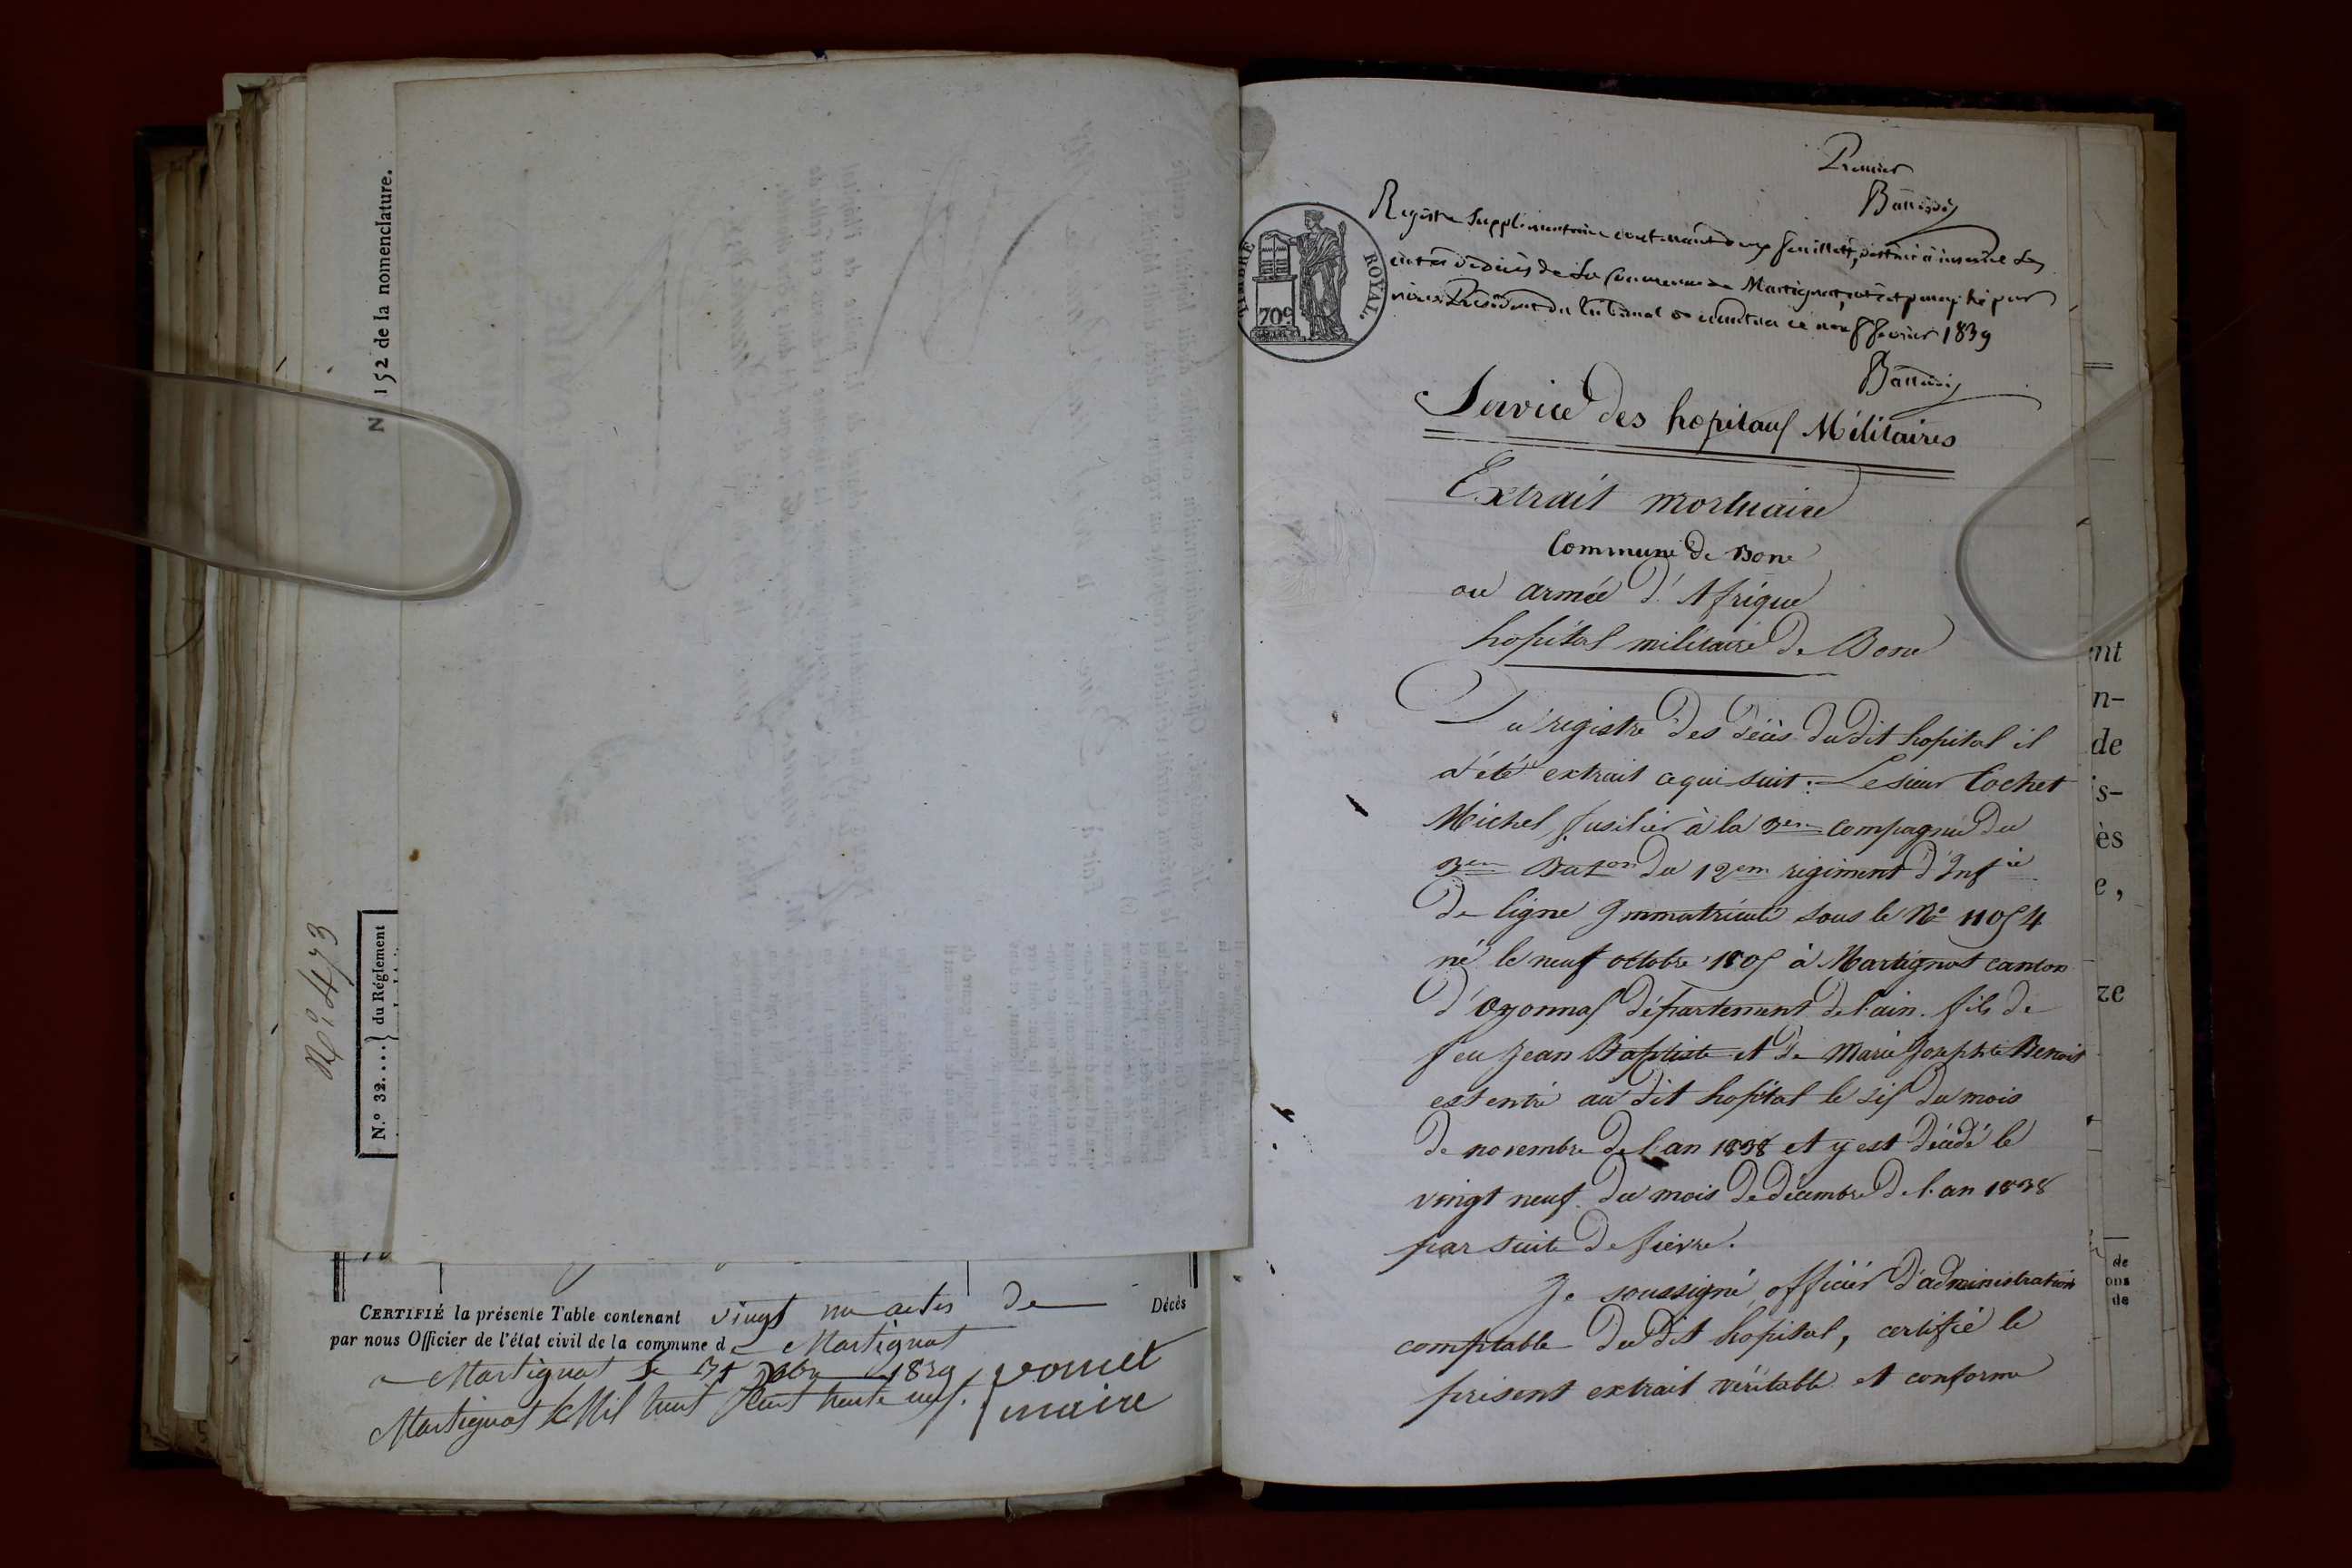 N 152 de la nomenclature.
N.° 473
N.° 32.... } du Réglement
CERTIFIÉ la présente Table contenant vingt un actes de Décès
par nous Officier de l'état civil de la commune de Martignat
a Martignat le 31 Xbre 1839
Martignat le Mil huit Cent trente neuf.
maire
Premier
Registre Supplémentaire contenant deux feuillets, destiné à inscrire les
actes de décès de la Commune de Martignat, coté et paraphé par
nous Président du tribunal de nantua ce neuf fevrier 1839
TIMBRE ROYAL.
70c
Service des hopitaux Militaires
Extrait mortuaire
Commune de Bone
ou armée d'Afrique
hopital militaire de Bone
Du registre des décès du dit hopital il
a été extrait ce qui suit : Le sieur Cochet
Michel fusilier à la 3em compagnie du
3em Baton du 12em régiment d'Infie
de ligne Immatriculé sous le No 11054
né le neuf octobre 1805 à Martignat canton
d'oyonnax département de l'ain. fils de
feu Jean Baptiste et de Marie Josephte Benoit
est entré au dit hopital le six du mois
de novembre de l'an 1838 et y est décédé le
vingt neuf du mois de décembre de l'an 1838
par suite de fièvre.
Je soussigné officier d'administration
comptable du dit hopital, certifié le
présent extrait véritable et conforme
nt
n-
de
s-
ès
e,
ze
de
ons
de